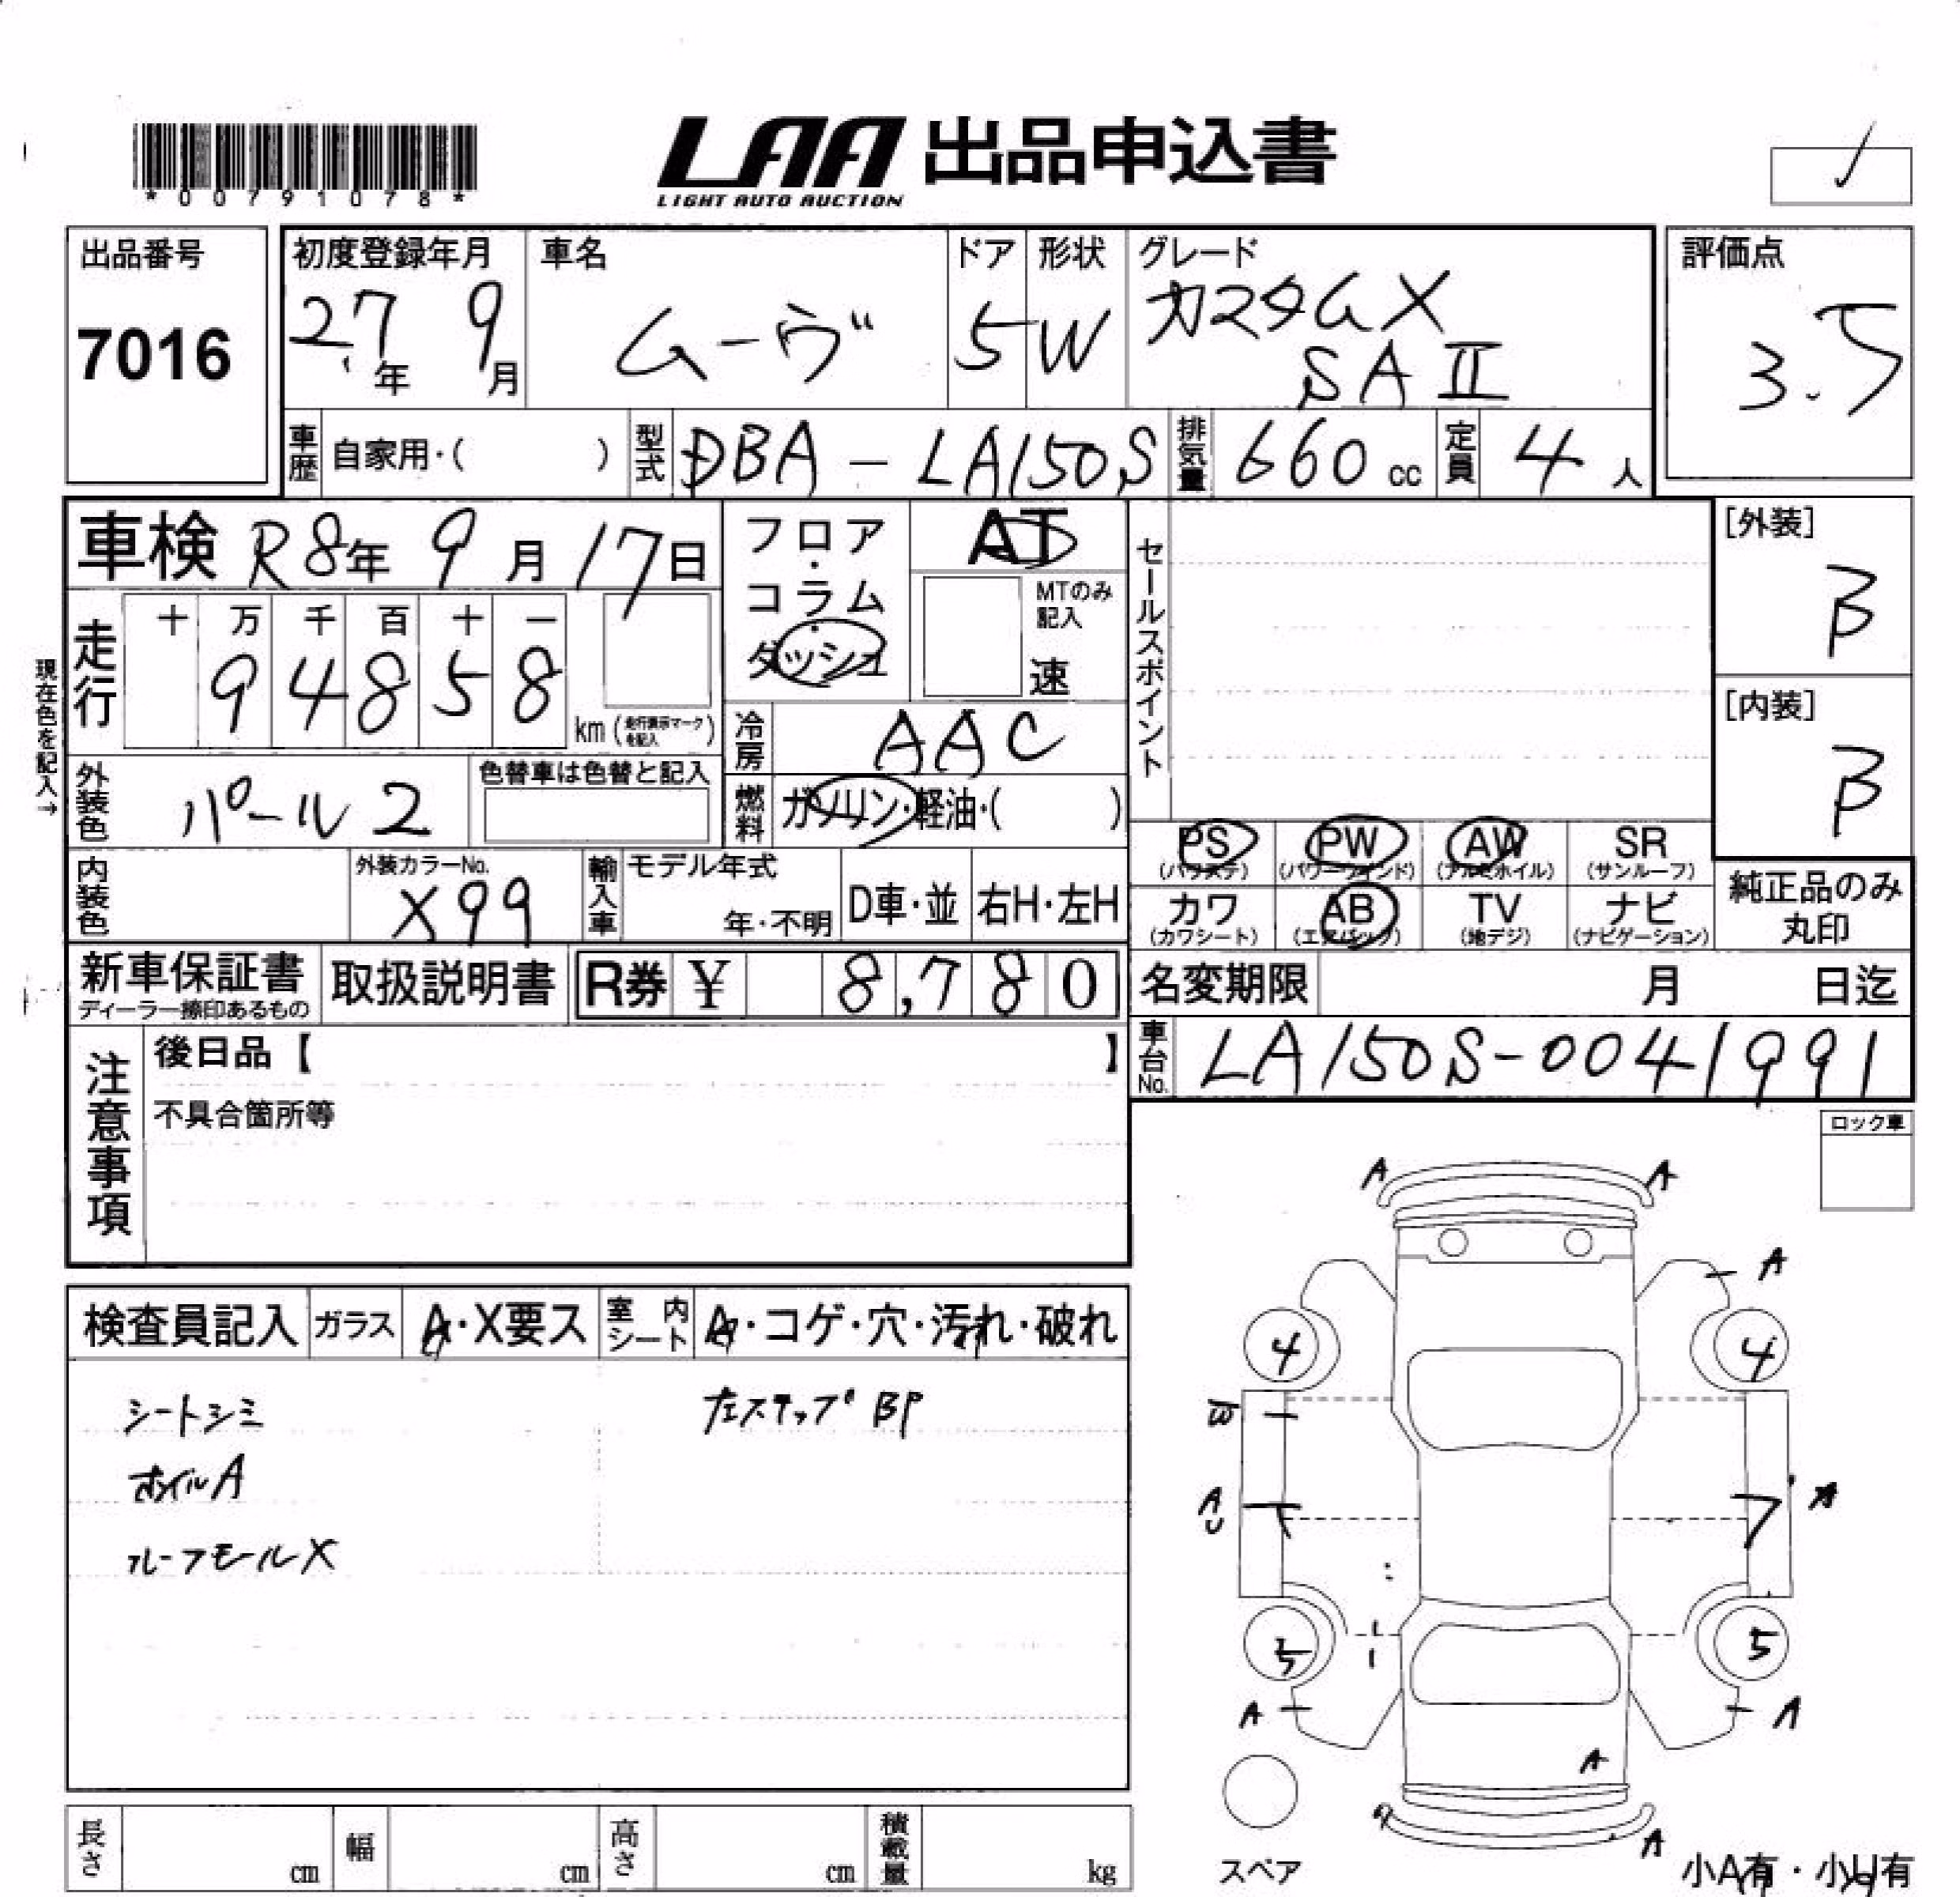 *00791078*
LAA 出品申込書
LIGHT AUTO AUCTION
出品番号
7016
初度登録年月
27年 9月
車名
ムーヴ
ドア
5
形状
W
グレード
カスタムX
SAⅡ
評価点
3.5
車歴 自家用・( )
型式 DBA-LA150S
排気量 660cc
定員 4人
車検 R8年9月17日
フロア・コラム・ダッシュ
AT
MTのみ記入
速
セールスポイント
[外装]
B
[内装]
B
現在色を記入→
走行
十 万 千 百 十 一
9 4 8 5 8
km(走行表示マークを記入)
冷房 AAC
外装色 パール2
色替車は色替と記入
燃料 ガソリン・軽油・( )
PS (パワステ)
PW (パワーウインド)
AW (アルミホイル)
SR (サンルーフ)
内装色
外装カラーNo.
X99
輸入車
モデル年式
年・不明
D車・並
右H・左H
カワ (カワシート)
AB (エアバック)
TV (地デジ)
ナビ (ナビゲーション)
純正品のみ
丸印
新車保証書
ディーラー捺印あるもの
取扱説明書
R券 ¥ 8,780
名変期限 月 日迄
車台No. LA150S-0041991
注意事項
後日品【 】
不具合箇所等
ロック車
検査員記入
ガラス A・X要ス
室内シート A・コゲ・穴・汚れ・破れ
シートシミ
左ステップBP
ホイルA
ルーフモールX
A
A
A
4
4
A
U
A
5
5
A
A
A
A
スペア
小A有・小U有
長さ cm
幅 cm
高さ cm
積載量 kg